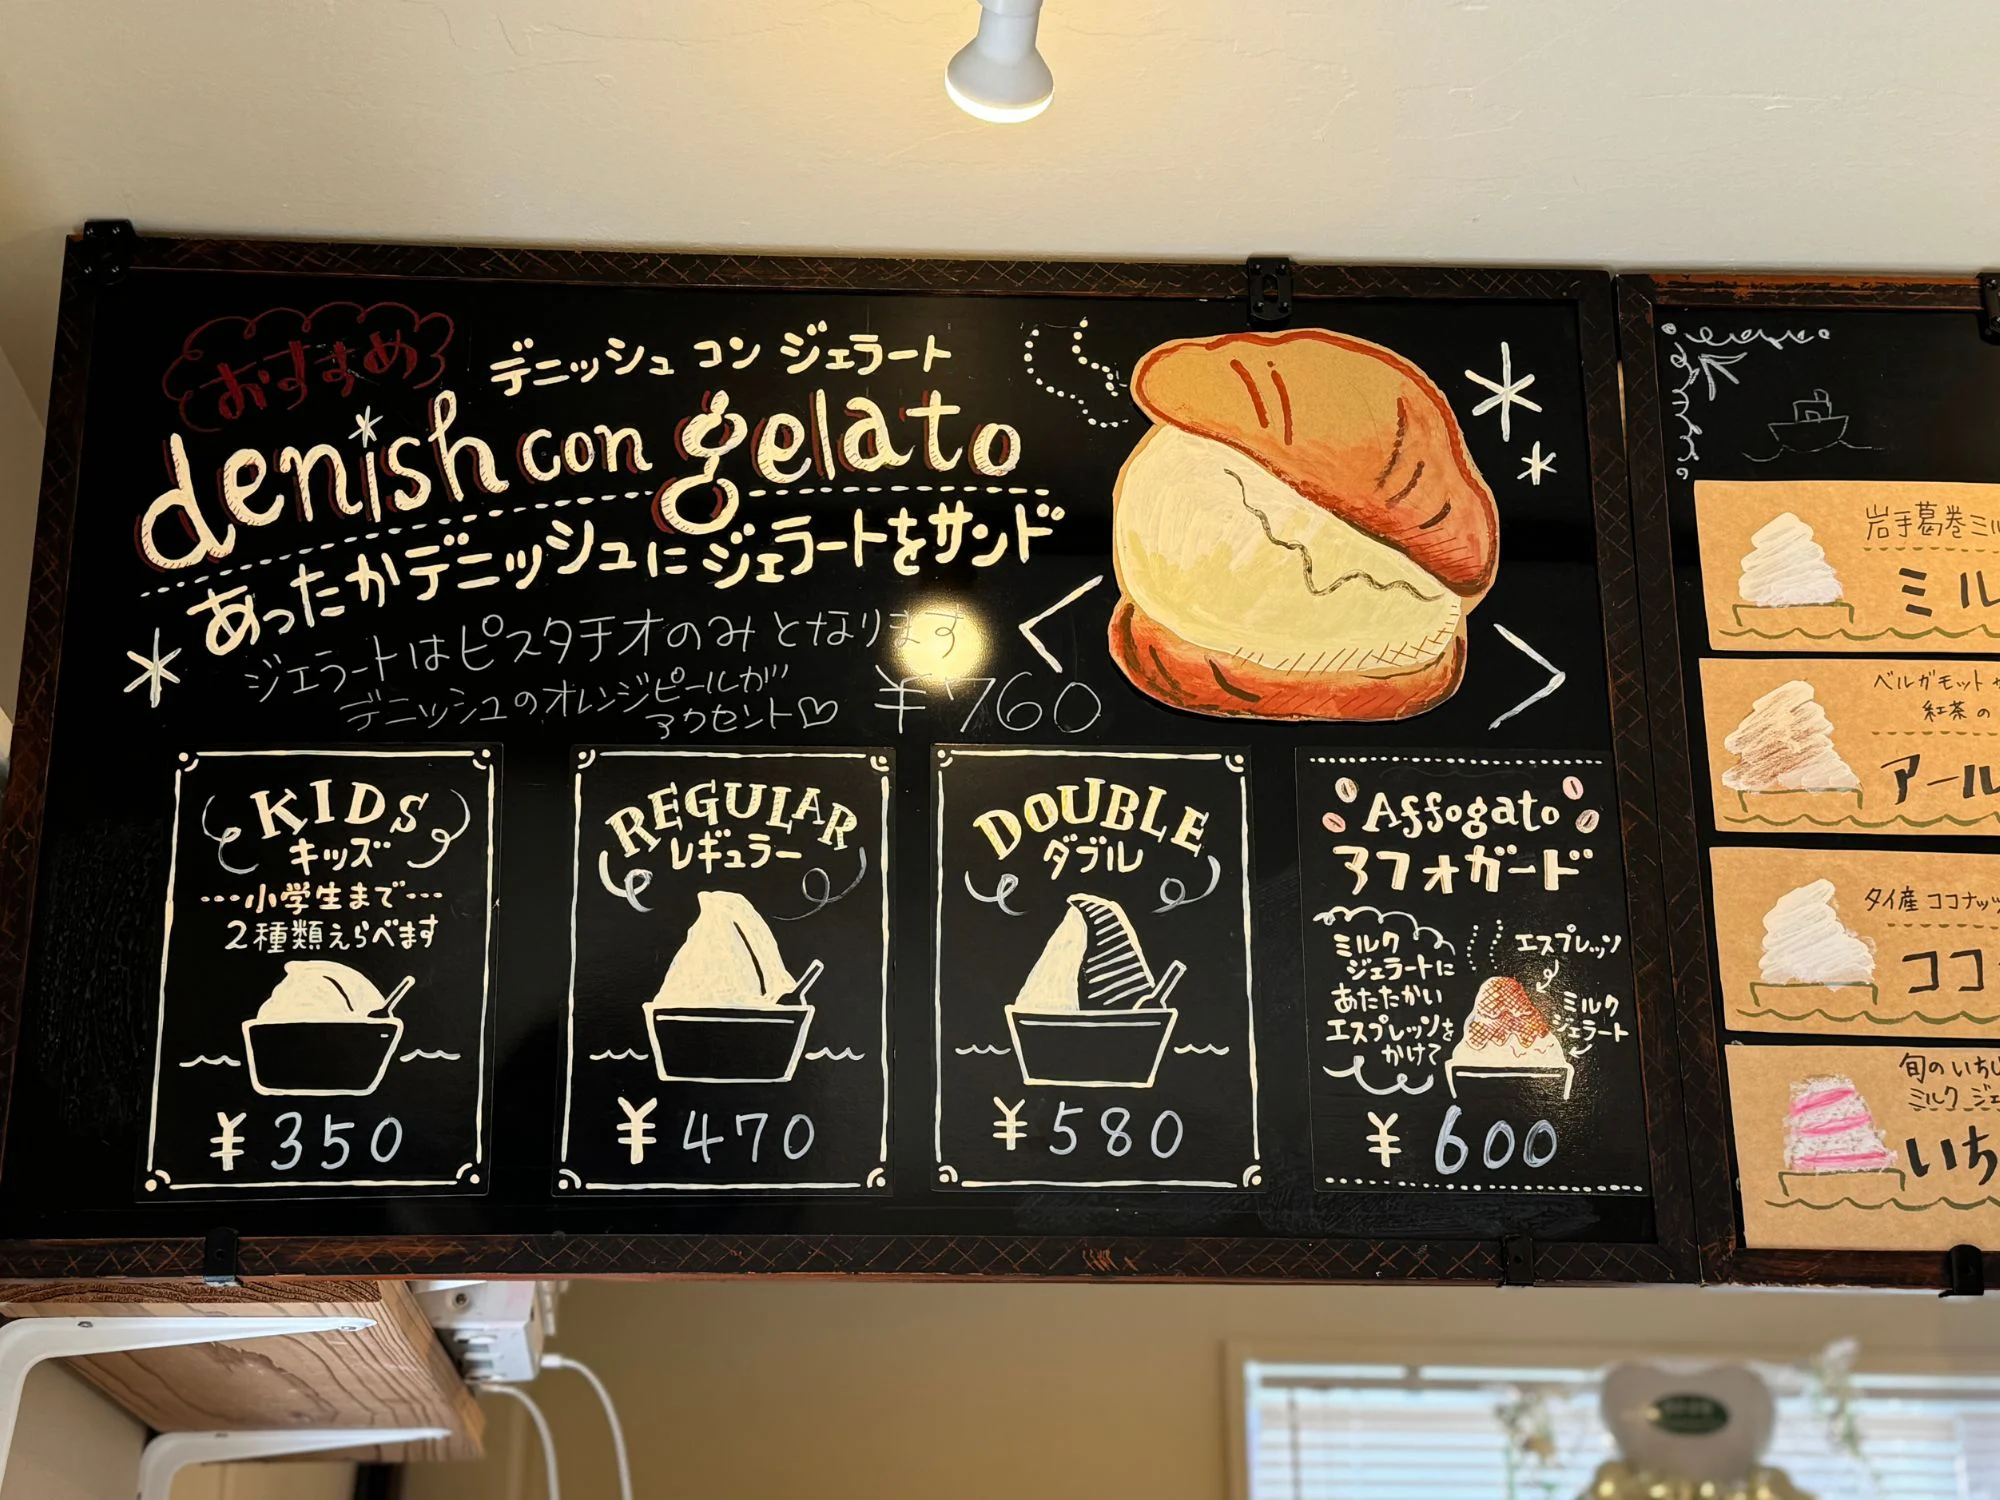 おすすめ
デニッシュ コン ジェラート
denish con gelato
あったかデニッシュにジェラートをサンド
ジェラートはピスタチオのみとなります
デニッシュのオレンジピールが
アクセント♡
¥760
KIDS
キッズ
…小学生まで…
2種類えらべます
¥350
REGULAR
レギュラー
¥470
DOUBLE
ダブル
¥580
Affogato
アフォガード
ミルク
ジェラートに
あたたかい
エスプレッソを
かけて
エスプレッソ
ミルク
ジェラート
¥600
岩手葛巻ミル
ミル
ベルガモット
紅茶の
アール
タイ産ココナッツ
ココ
旬のいち
ミルクジェ
いち